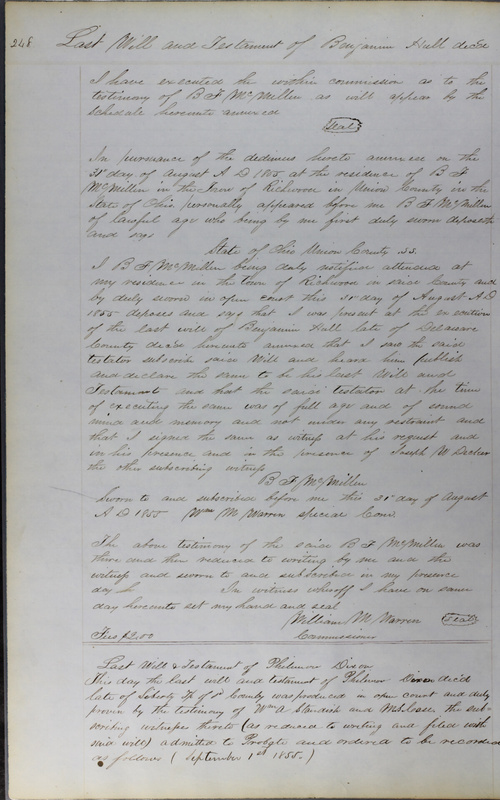 248 Last Will and Testament of Benjamin Hull decd
I have executed the within commission as to the
testimony of B F McMillen as will appear by the
schedule hereunto annexed
Seal
In pursuance of the dedimus hereto annexed on the
31st day of August A D 1855 at the residence of B F
McMillen in the Town of Richwood in Union County in the
State of Ohio personally appeared before me B F McMillen
of lawful age who being by me first duly sworn deposeth
and says
State of Ohio Union County SS.
I B F McMillen being duly notified attended at
my residence in the town of Richwood in said County and
by duly sworn in open court this 31st day of August A D
1855 deposes and says that I was present at the execution
of the last will of Benjamin Hull late of Delaware
County decd hereunto annexed that I saw the said
testator subscribe said Will and heard him publish
and declare the same to be his last Will and
Testament and that the said testator at the time
of executing the same was of full age and of sound
mind and memory and not under any restraint and
that I signed the same as witness at his request and
in his presence and in the presence of Joseph W Decker
the other subscribing witness
B F McMillen
Sworn to and subscribed before me this 31st day of August
A D 1855 Wm M Warren special Com
The above testimony of the said B F McMillen was
there and then reduced to writing by me and the
witness and sworn to and subscribed in my presence
day &c In witness whereof I have on same
day hereunto set my hand and seal
William M Warren Seal
Fees $2,00 Commissioner
Last Will & Testament of Philemor Dixon
This day the last will and testament of Philemor Dixon decd
late of Liberty Tp of sd County was produced in open court and duly
proven by the testimony of Wm A Standish and the sub-
scribing witnesses thereto (as reduced to writing and filed with
said will) admitted to Probate and ordered to be recorded
as follows (September 1st 1855.)